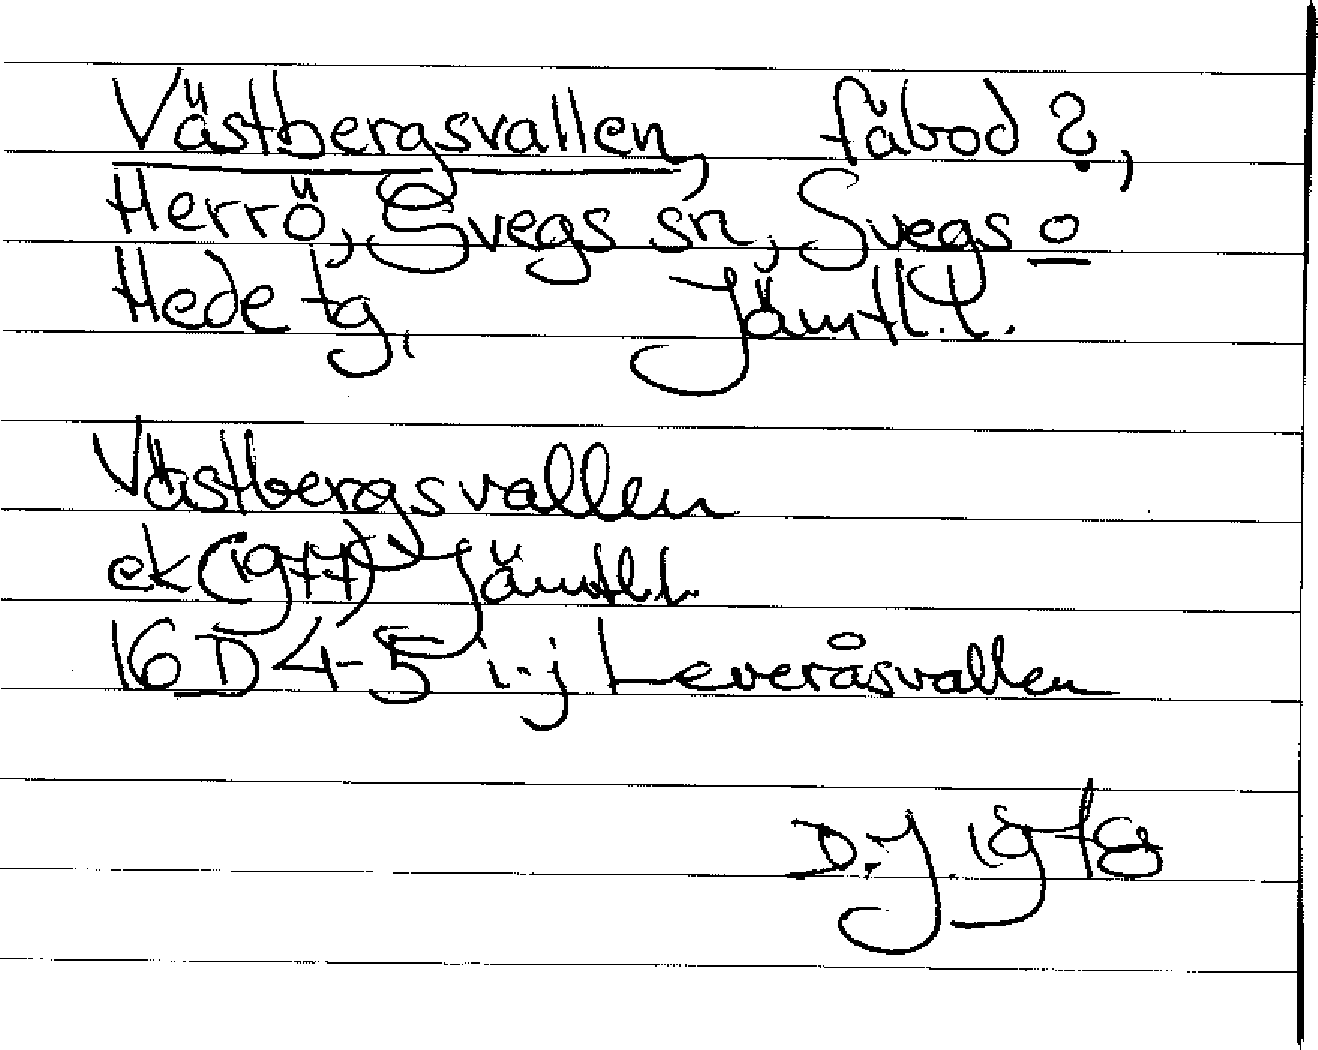 Västbergsvallen, fäbod?,
Herrö, Svegs sn, Svegs o
Hede tg, Jämtl.l.
Västbergsvallen
ek (1977) Jämtl.l.
16 D 4-5 i-j Leveråsvallen
D.J. 1978